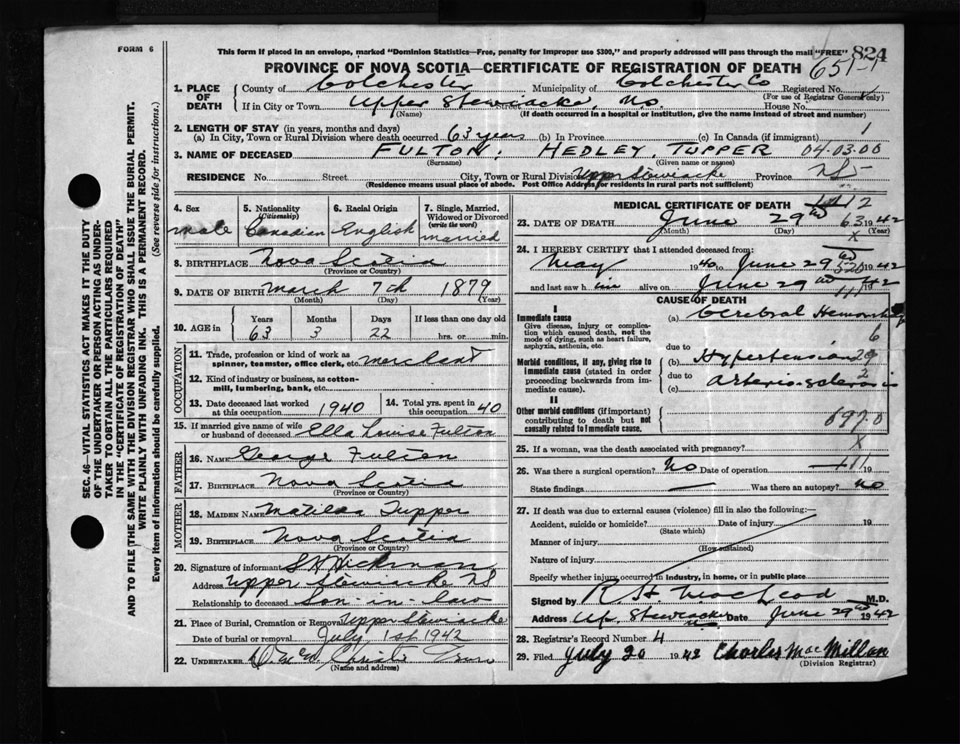 FORM 6
This form if placed in an envelope, marked "Dominion Statistics—Free, penalty for improper use $300," and properly addressed will pass through the mail "FREE" 824
PROVINCE OF NOVA SCOTIA—CERTIFICATE OF REGISTRATION OF DEATH 651-1
1. PLACE OF DEATH
County of Colchester Municipality of Colchester Co Registered No.
(For use of Registrar General only)
If in City or Town Upper Stewiacke, Street, No. House No.
(Name) (If death occurred in a hospital or institution, give the name instead of street and number)
2. LENGTH OF STAY (in years, months and days)
(a) In City, Town or Rural Division where death occurred 63 years (b) In Province (c) In Canada (if immigrant) 1
3. NAME OF DECEASED FULTON, HEDLEY, TUPPER 04.03.00
(Surname) (Given name or names)
RESIDENCE No. Street City, Town or Rural Division Upper Stewiacke Province NS
(Residence means usual place of abode. Post Office Address for residents in rural parts not sufficient)
4. Sex
male
5. Nationality (Citizenship)
Canadian
6. Racial Origin
English
7. Single, Married, Widowed or Divorced (write the word)
married
8. BIRTHPLACE Nova Scotia
(Province or Country)
9. DATE OF BIRTH March 7th 1879
(Month) (Day) (Year)
10. AGE in
Years Months Days If less than one day old
63 3 22 hrs. or min.
OCCUPATION
11. Trade, profession or kind of work as spinner, teamster, office clerk, etc. merchant
12. Kind of industry or business, as cotton-mill, lumbering, bank, etc.
13. Date deceased last worked at this occupation 1940
14. Total yrs. spent in this occupation 40
15. If married give name of wife or husband of deceased Ella Louise Fulton
FATHER
16. NAME George Fulton
17. BIRTHPLACE Nova Scotia
(Province or Country)
MOTHER
18. MAIDEN NAME Matilda Tupper
19. BIRTHPLACE Nova Scotia
(Province or Country)
20. Signature of informant S H Hickman
Address Upper Stewiacke NS
Relationship to deceased Son-in-law
21. Place of Burial, Cremation or Removal Upper Stewiacke
Date of burial or removal July 1st 1942
22. UNDERTAKER
(Name and address)
MEDICAL CERTIFICATE OF DEATH
23. DATE OF DEATH June 29th 63 1942
(Month) (Day) (Year)
X
24. I HEREBY CERTIFY that I attended deceased from:
May 1940 to June 29th 1942
and last saw him alive on June 29th 1942
CAUSE OF DEATH
I
Immediate cause
Give disease, injury or complication which caused death, not the mode of dying, such as heart failure, asphyxia, asthenia, etc.
(a) Cerebral Hemorrhage
6
due to
Morbid conditions, if any, giving rise to immediate cause (stated in order proceeding backwards from immediate cause).
(b) Hypertension
due to 2
(c) arterio-sclerosis
II
Other morbid conditions (if important) contributing to death but not causally related to immediate cause.
697.0
25. If a woman, was the death associated with pregnancy? X
26. Was there a surgical operation? No Date of operation 19
State findings — Was there an autopsy? no
27. If death was due to external causes (violence) fill in also the following:—
Accident, suicide or homicide? Date of injury 19
(State which)
Manner of injury
(How sustained)
Nature of injury
Specify whether injury occurred in industry, in home, or in public place
Signed by R. H. MacLeod M.D.
Address Up. Stewiacke Date June 29th 1942
28. Registrar's Record Number 4
29. Filed July 20 1942 Charles MacMillan
(Division Registrar)
SEC. 46—VITAL STATISTICS ACT MAKES IT THE DUTY
OF THE UNDERTAKER OR PERSON ACTING AS UNDER-
TAKER TO OBTAIN ALL THE PARTICULARS REQUIRED
IN THE "CERTIFICATE OF REGISTRATION OF DEATH"
AND TO FILE THE SAME WITH THE DIVISION REGISTRAR WHO SHALL ISSUE THE BURIAL PERMIT.
WRITE PLAINLY WITH UNFADING INK. THIS IS A PERMANENT RECORD.
Every item of information should be carefully supplied. (See reverse side for instructions.)